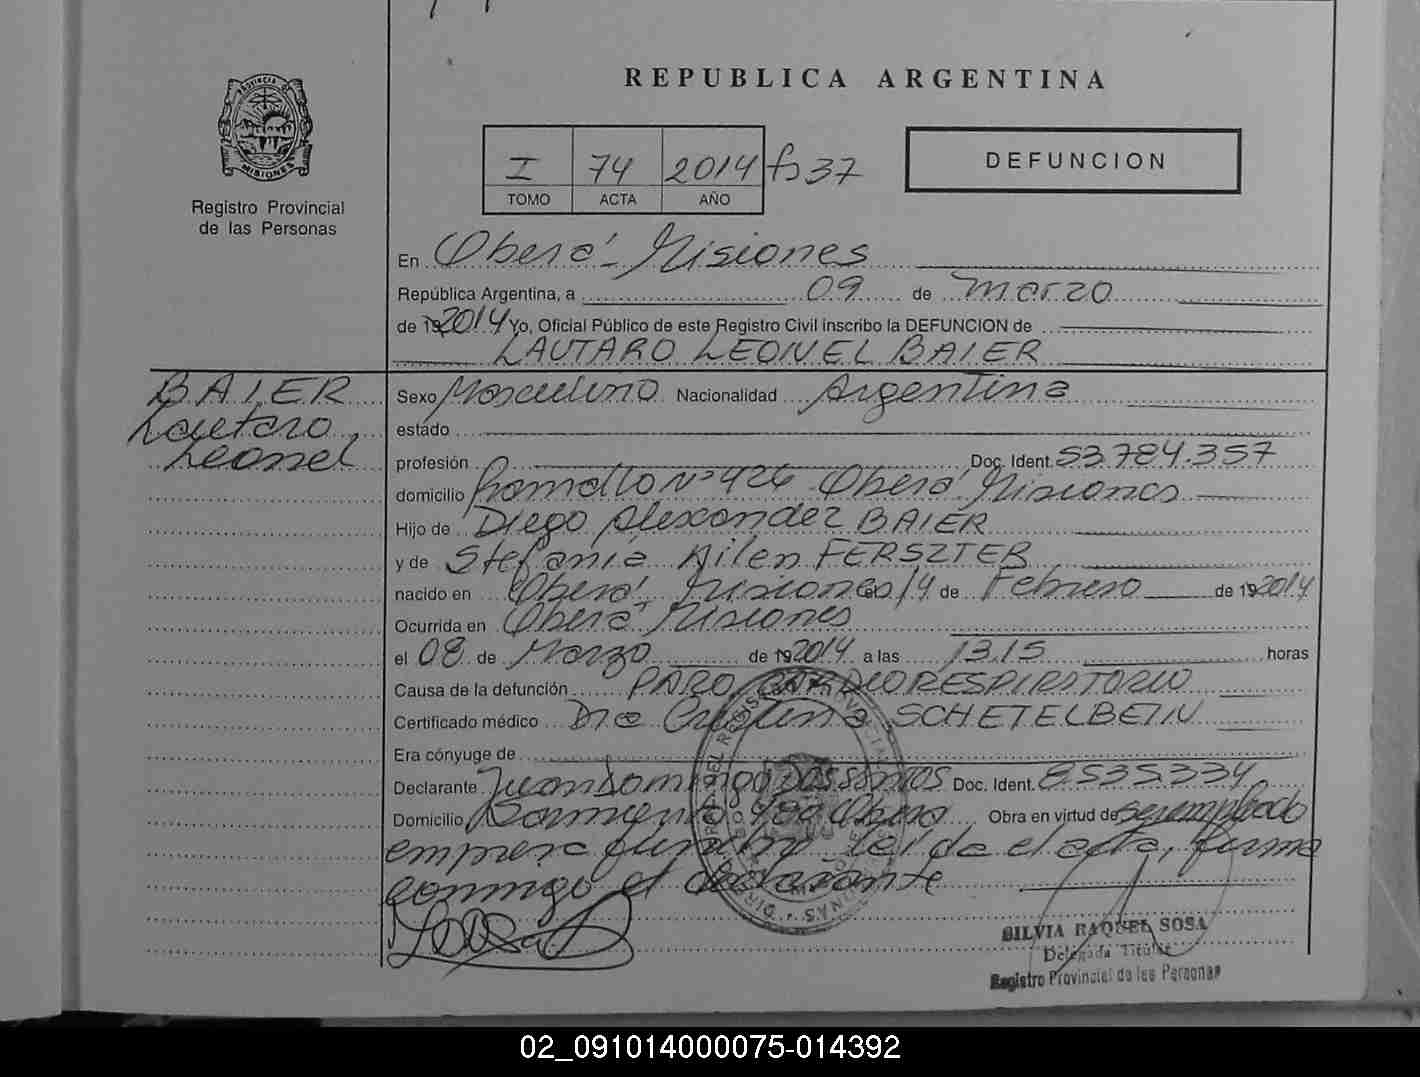 REPUBLICA ARGENTINA
PROVINCIA DE
MISIONES
Registro Provincial
de las Personas
I 74 2014 fs 37
TOMO ACTA AÑO
DEFUNCION
En Oberá - Misiones
República Argentina, a 09 de marzo
de 19 2014 Yo, Oficial Público de este Registro Civil inscribo la DEFUNCION de
LAUTARO LEONEL BAIER
BAIER
Lautaro
Leonel
Sexo Masculino Nacionalidad Argentina
estado
profesión Doc. Ident. 53.784.357
domicilio Nº 426 Oberá Misiones
Hijo de Diego Alexander BAIER
y de Stefania Ailen FERSZTEB
nacido en Oberá Misiones el 14 de Febrero de 19 2014
Ocurrida en Oberá Misiones
el 08 de Marzo de 19 2014 a las 13.15 horas
Causa de la defunción PARO CARDIORESPIRATORIO
Certificado médico Dra Cristina SCHETELBEIN
Era cónyuge de
Declarante Juan Domingo Dos Santos Doc. Ident. 8535334
Domicilio Sarmiento Oberá Obra en virtud de ser empleado
empresa fúnebre. Leída el acta, firma
conmigo el declarante
SILVIA RAQUEL SOSA
Delegada Titular
Registro Provincial de las Personas
02_091014000075-014392